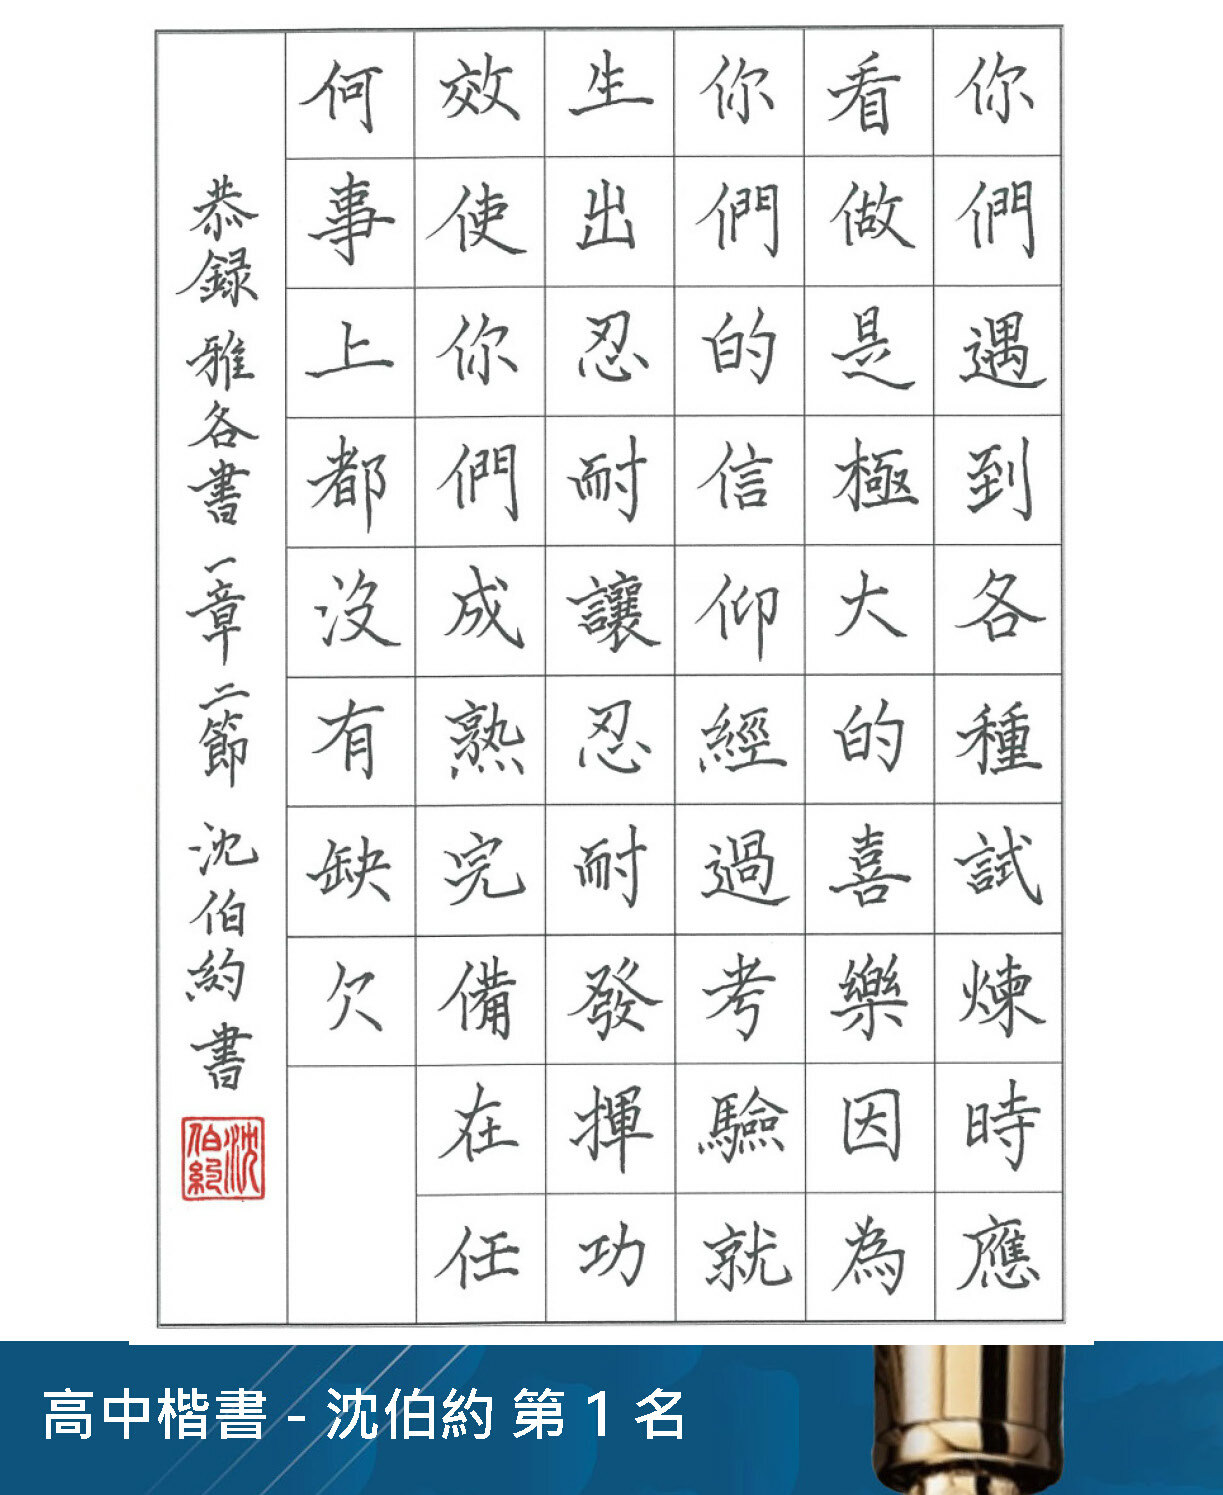 你們遇到各種試煉時應
看做是極大的喜樂因為
你們的信仰經過考驗就
生出忍耐讓忍耐發揮功
效使你們成熟完備在任
何事上都沒有缺欠
恭録雅各書一章二節 沈伯約書
沈伯約
高中楷書 - 沈伯約 第 1 名